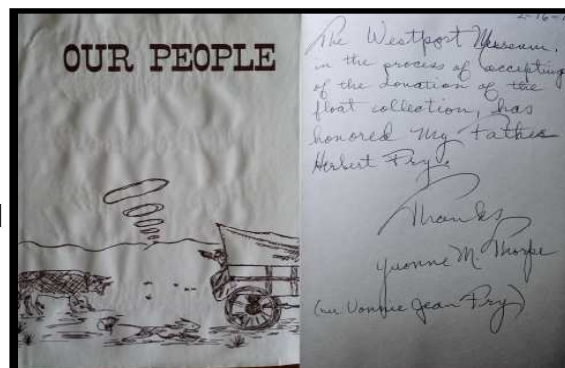 OUR PEOPLE
2-16-
The Westport Museum,
in the process of accepting
of the donation of the
float collection, has
honored my Father
Herbert Fry.
Thanks
Yvonne M. Thorpe
Vonnie Jean Fry)